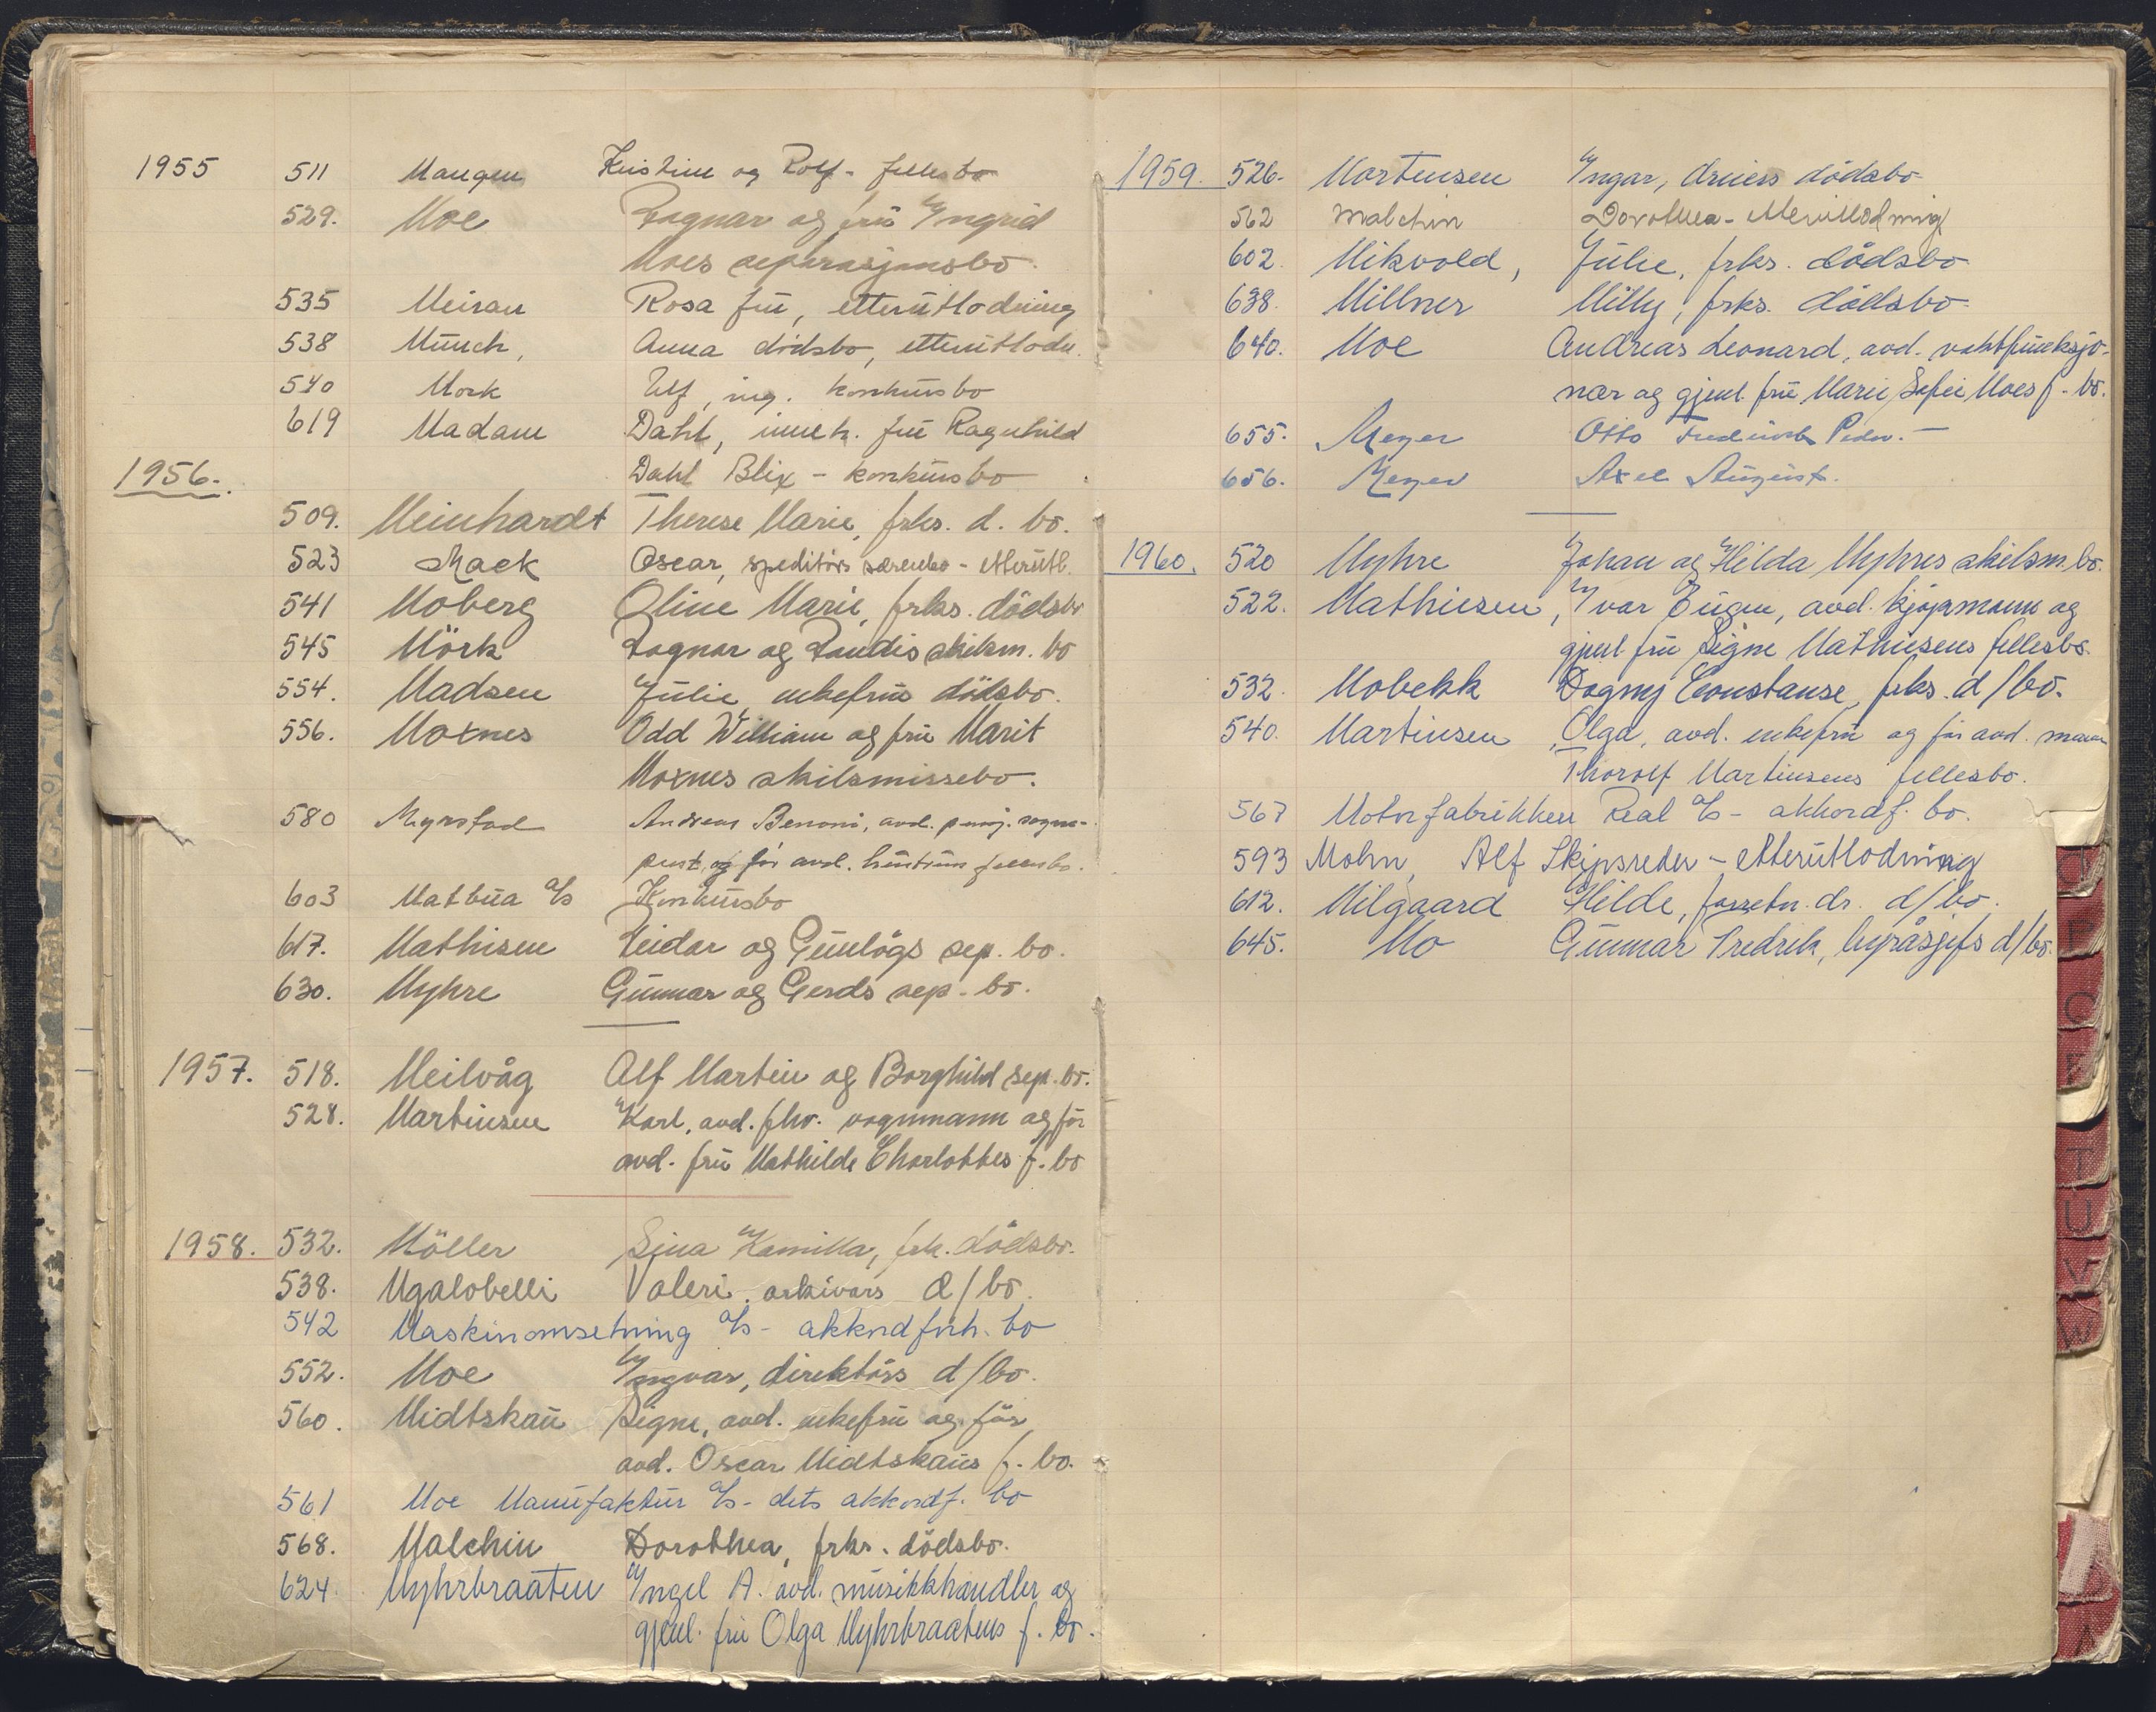 1955 511 Maugen Kristine og Rolf - fellesbo
529. Moe Ragnar og fru Ingrid
Moes separasjonsbo.
535 Meiran Rosa fru, etterutlodning
538 Münch, Anna dödsbo, etterutlodn.
540 Mork Ulf, ing. konkursbo
619 Madam Dahl, inneh. fru Ragnhild
Dahl Blix - konkursbo
1956.
509. Meinhardt Therese Marie, frks. d. bo.
523 Mack Oscar, speditörs særeiebo - etterutl.
541 Moberg Oline Marie, frks. dödsbo
545 Mörk Ragnar og Randis skilsm. bo
554. Madsen Julie, enkefrus dödsbo.
556. Moxnes Odd William og fru Marit
Moxnes skilsmissebo.
580 Myrstad Andreas Benoni, avd. pensj. sogne-
prest og för avd. hustrus fellesbo.
603 Matbua A/S Konkursbo
617. Mathisen Reidar og Gunlögs sep. bo.
630. Myhre Gunnar og Gerds sep. bo.
1957. 518. Meilvåg Alf Martin og Borghild sep. bo.
528. Martinsen Karl, avd. fhv. vognmann og för
avd. fru Mathilde Charlottes f. bo
1958. 532. Möller Sina Kamilla, frk. dödsbo.
538. Mgalobelli Valeri, arkivars d/bo.
542 Maskinomsetning A/S - akkordforh. bo
552. Moe Ingvar, direktörs d/bo.
560. Midtskau Signe, avd. enkefru og för
avd. Oscar Midtskaus f. bo.
561 Moe Manufaktur A/S - dets akkordf. bo
568. Malchin Dorothea, frks. dödsbo.
624. Myhrbraaten Ingel A. avd. musikkhandler og
gjenl. fru Olga Myhrbraatens f. bo.
1959. 526. Mortensen Ingar, dödsbo
562 Malchin Dorothea -
602. Mikvold, Julie, frks. dödsbo
638. Millner Milly, frks. dödsbo
640. Moe Andreas Leonard, avd. vaktfunksjo-
nær og gjenl. fru Marie Sofie Moes f. bo.
655. Meyer Otto Frederick Peder. -
656. Meyer Axel August.
1960. 520 Myhre Johan og Hilda Myhres skilsm. bo.
522. Mathiesen, Ivar Eugen, avd. kjöpmann og
gjenl fru Signe Mathiesens fellesbo.
532. Mobekk Dagny Constanse, frks. d/bo.
540. Martinsen Olga, avd. enkefru og för avd. mann
Thorolf Martinsens fellesbo.
567 Motorfabrikken Real A/S - akkordf. bo.
593 Mohn, Alf Skipsreder - etterutlodning
612. Milgaard Hilde, forretn. dr. d/bo.
645. Mo Gunnar Fredrik, byråsjefs d/bo.
T
U
V
W